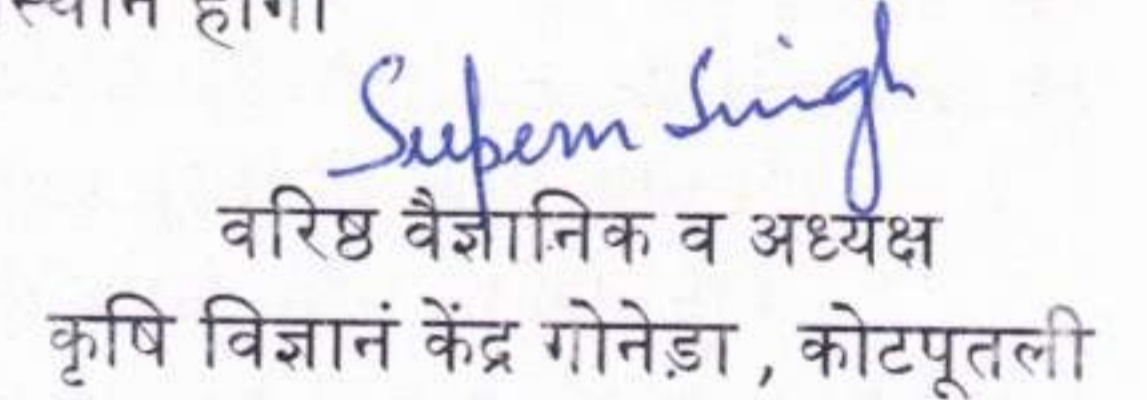 स्थान होगा
Singh
वरिष्ठ वैज्ञानिक व अध्यक्ष
कृषि विज्ञानं केंद्र गोनेड़ा , कोटपूतली